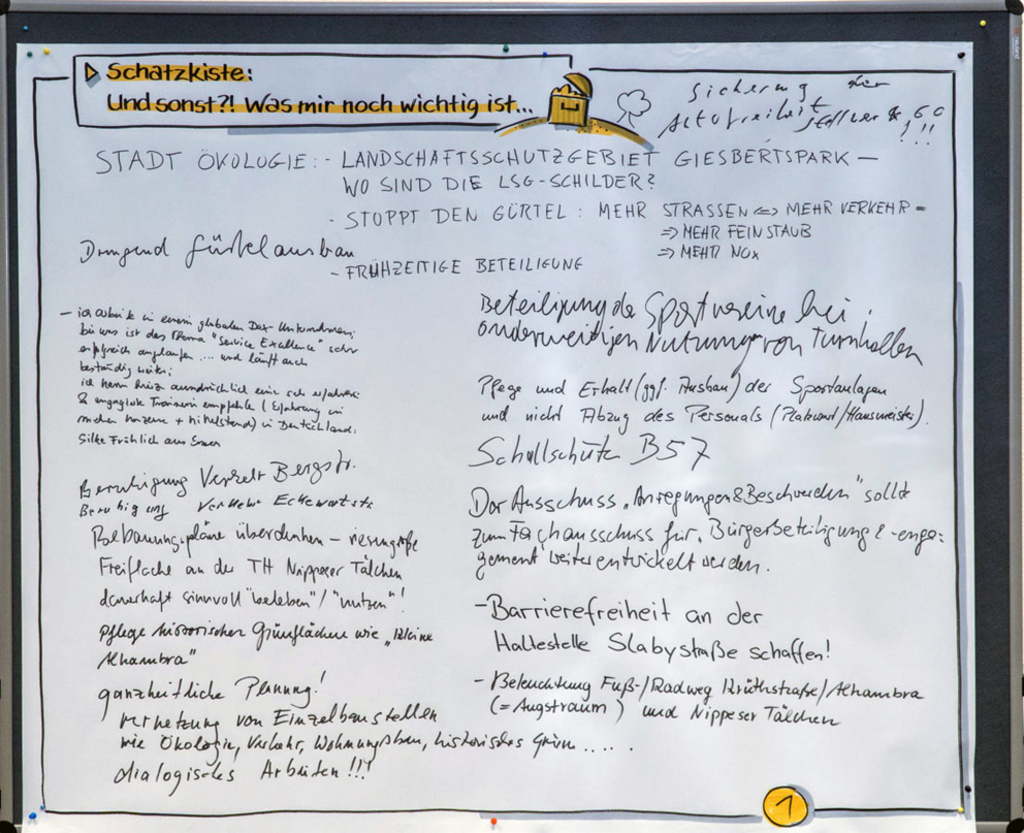 Schatzkiste:
Und sonst?! Was mir noch wichtig ist...
Sicherung der
Autofreiheit Stellwerk 60
!!!
STADT ÖKOLOGIE: - LANDSCHAFTSSCHUTZGEBIET GIESBERTSPARK –
WO SIND DIE LSG-SCHILDER?
- STOPPT DEN GÜRTEL: MEHR STRASSEN <=> MEHR VERKEHR =
=> MEHR FEINSTAUB
=> MEHR NOx
Dringend Gürtelausbau
- FRÜHZEITIGE BETEILIGUNG
– ich arbeite in einem globalen Dax-Unternehmen;
bei uns ist das Thema "Service Excellence" sehr
erfolgreich angelaufen ... und läuft auch
beständig weiter;
ich kann hierzu ausdrücklich eine sehr erfahrene
& engagierte Trainerin empfehlen (Erfahrung in
Konzerne + Mittelstand) in Deutschland.
Silke Fröhlich aus Essen
Beteiligung der Sportvereine bei
anderweitigen Nutzung von Turnhallen
Pflege und Erhalt (ggf. Ausbau) der Sportanlagen
und nicht Abzug des Personals (Platzwart/Hausmeister).
Schallschutz B57
Beruhigung Verkehr Bergstr.
Beruhigung Verkehr Eckewartstr.
Der Ausschuss „Anregungen & Beschwerden" sollte
zum Fachausschuss für Bürgerbeteiligung & -enga-
gement weiterentwickelt werden.
Bebauungspläne überdenken – riesengroße
Freifläche an der TH Nippeser Tälchen
dauerhaft sinnvoll "beleben"/"nutzen"!
Pflege historischer Grünflächen wie „Kleine
Alhambra"
- Barrierefreiheit an der
Haltestelle Slabystraße schaffen!
- Beleuchtung Fuß-/Radweg Kruthstraße/Alhambra
(= Angstraum) und Nippeser Tälchen
ganzheitliche Planung!
Vernetzung von Einzelbaustellen
wie Ökologie, Verkehr, Wohnungsbau, historisches Grün .....
dialogisches Arbeiten !!!
1